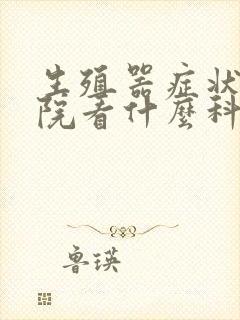 生殖器症状
院看什麼科
鲁瑛